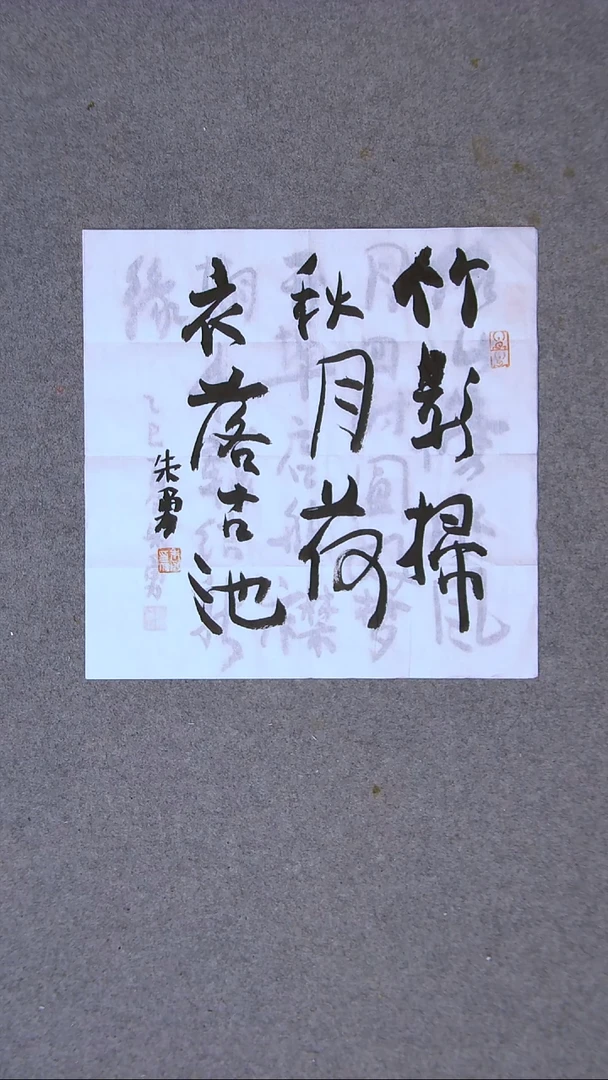 竹影掃
秋月荷
衣落古池
朱勇